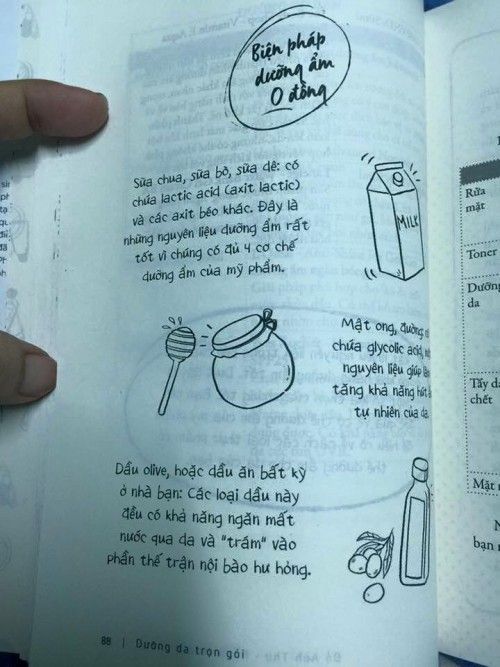 Biện pháp
dưỡng ẩm
0 đồng
Sữa chua, sữa bò, sữa dê: có
chứa lactic acid (axit lactic)
và các axit béo khác. Đây là
những nguyên liệu dưỡng ẩm rất
tốt vì chúng có đủ 4 cơ chế
dưỡng ẩm của mỹ phẩm.
MILK
Mật ong, đường
chứa glycolic acid,
nguyên liệu giúp
tăng khả năng hút
tự nhiên của da
Dầu olive, hoặc dầu ăn bất kỳ
ở nhà bạn: Các loại dầu này
đều có khả năng ngăn mất
nước qua da và "trám" vào
phần thế trận nội bào hư hỏng.
88 | Dưỡng da trọn gói
Rửa
mặt
Toner
Dưỡng
da
Tẩy da
chết
Mặt
bạn